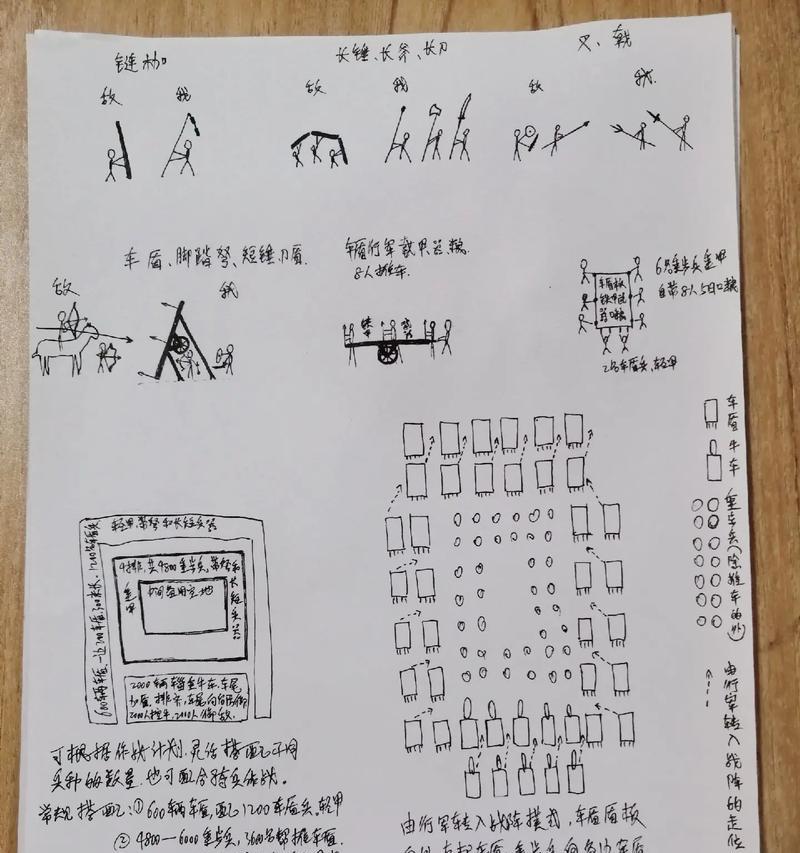 链枷
长锤、长斧、长刀
叉、戟
敌 我
敌 我
敌 我
车盾、脚踏弩、短锤刀盾
敌 我
车盾行军载甲器粮
8人推车
车盾板
铁甲
器口粮
6名重步兵重甲
自带8人5日口粮
2名车盾兵、轻甲
车盾
牛车
重步兵(除推车的外)
由行军转入战阵的走位
轻甲、带弩和长短兵器
600辆车盾、一边200车盾、
1200车盾兵
4排、共4800重步兵、带弩和长短兵器
重甲
中间营用空地
2000辆
牛车、车尾
2000人控牛、2000人御敌.
可根据作战计划,灵活搭配不同
兵种的数量.也可配合骑兵作战。
常规搭配:①600辆车盾,配1200车盾兵、轻甲
②4800—6000重步兵、3600名帮推车盾.
由行军转入战阵模式,车盾盾板